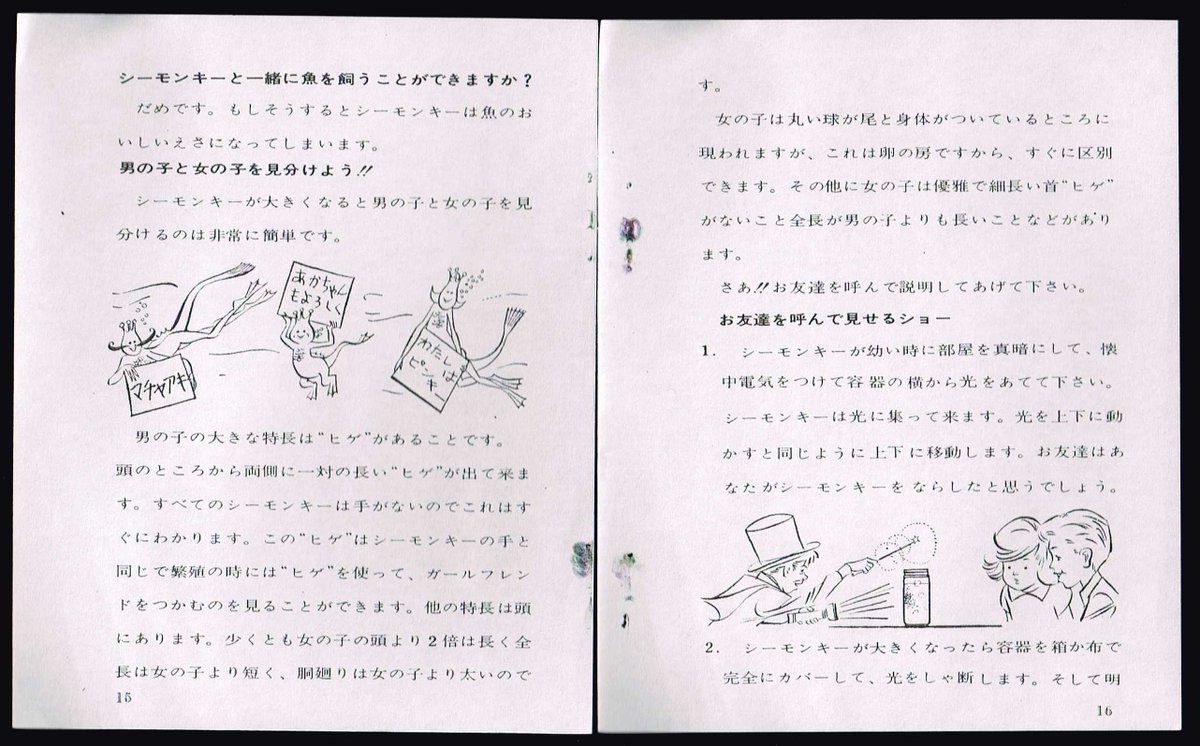 シーモンキーと一緒に魚を飼うことができますか？
だめです。もしそうするとシーモンキーは魚のお
いしいえさになってしまいます。
男の子と女の子を見分けよう!!
シーモンキーが大きくなると男の子と女の子を見
分けるのは非常に簡単です。
マチャアキ
あかちゃん
もよろしく
わたしは
ピンキー
男の子の大きな特長は“ヒゲ”があることです。
頭のところから両側に一対の長い“ヒゲ”が出て来ま
す。すべてのシーモンキーは手がないのでこれはす
ぐにわかります。この“ヒゲ”はシーモンキーの手と
同じで繁殖の時には“ヒゲ”を使って、ガールフレン
ドをつかむのを見ることができます。他の特長は頭
にあります。少くとも女の子の頭より２倍は長く全
長は女の子より短く、胴廻りは女の子より太いので
15
す。
女の子は丸い球が尾と身体がついているところに
現われますが、これは卵の房ですから、すぐに区別
できます。その他に女の子は優雅で細長い首“ヒゲ”
がないこと全長が男の子よりも長いことなどがあり
ます。
さあ!!お友達を呼んで説明してあげて下さい。
お友達を呼んで見せるショー
1. シーモンキーが幼い時に部屋を真暗にして、懐
中電気をつけて容器の横から光をあてて下さい。
シーモンキーは光に集って来ます。光を上下に動
かすと同じように上下に移動します。お友達はあ
なたがシーモンキーをならしたと思うでしょう。
2. シーモンキーが大きくなったら容器を箱か布で
完全にカバーして、光をしゃ断します。そして明
16